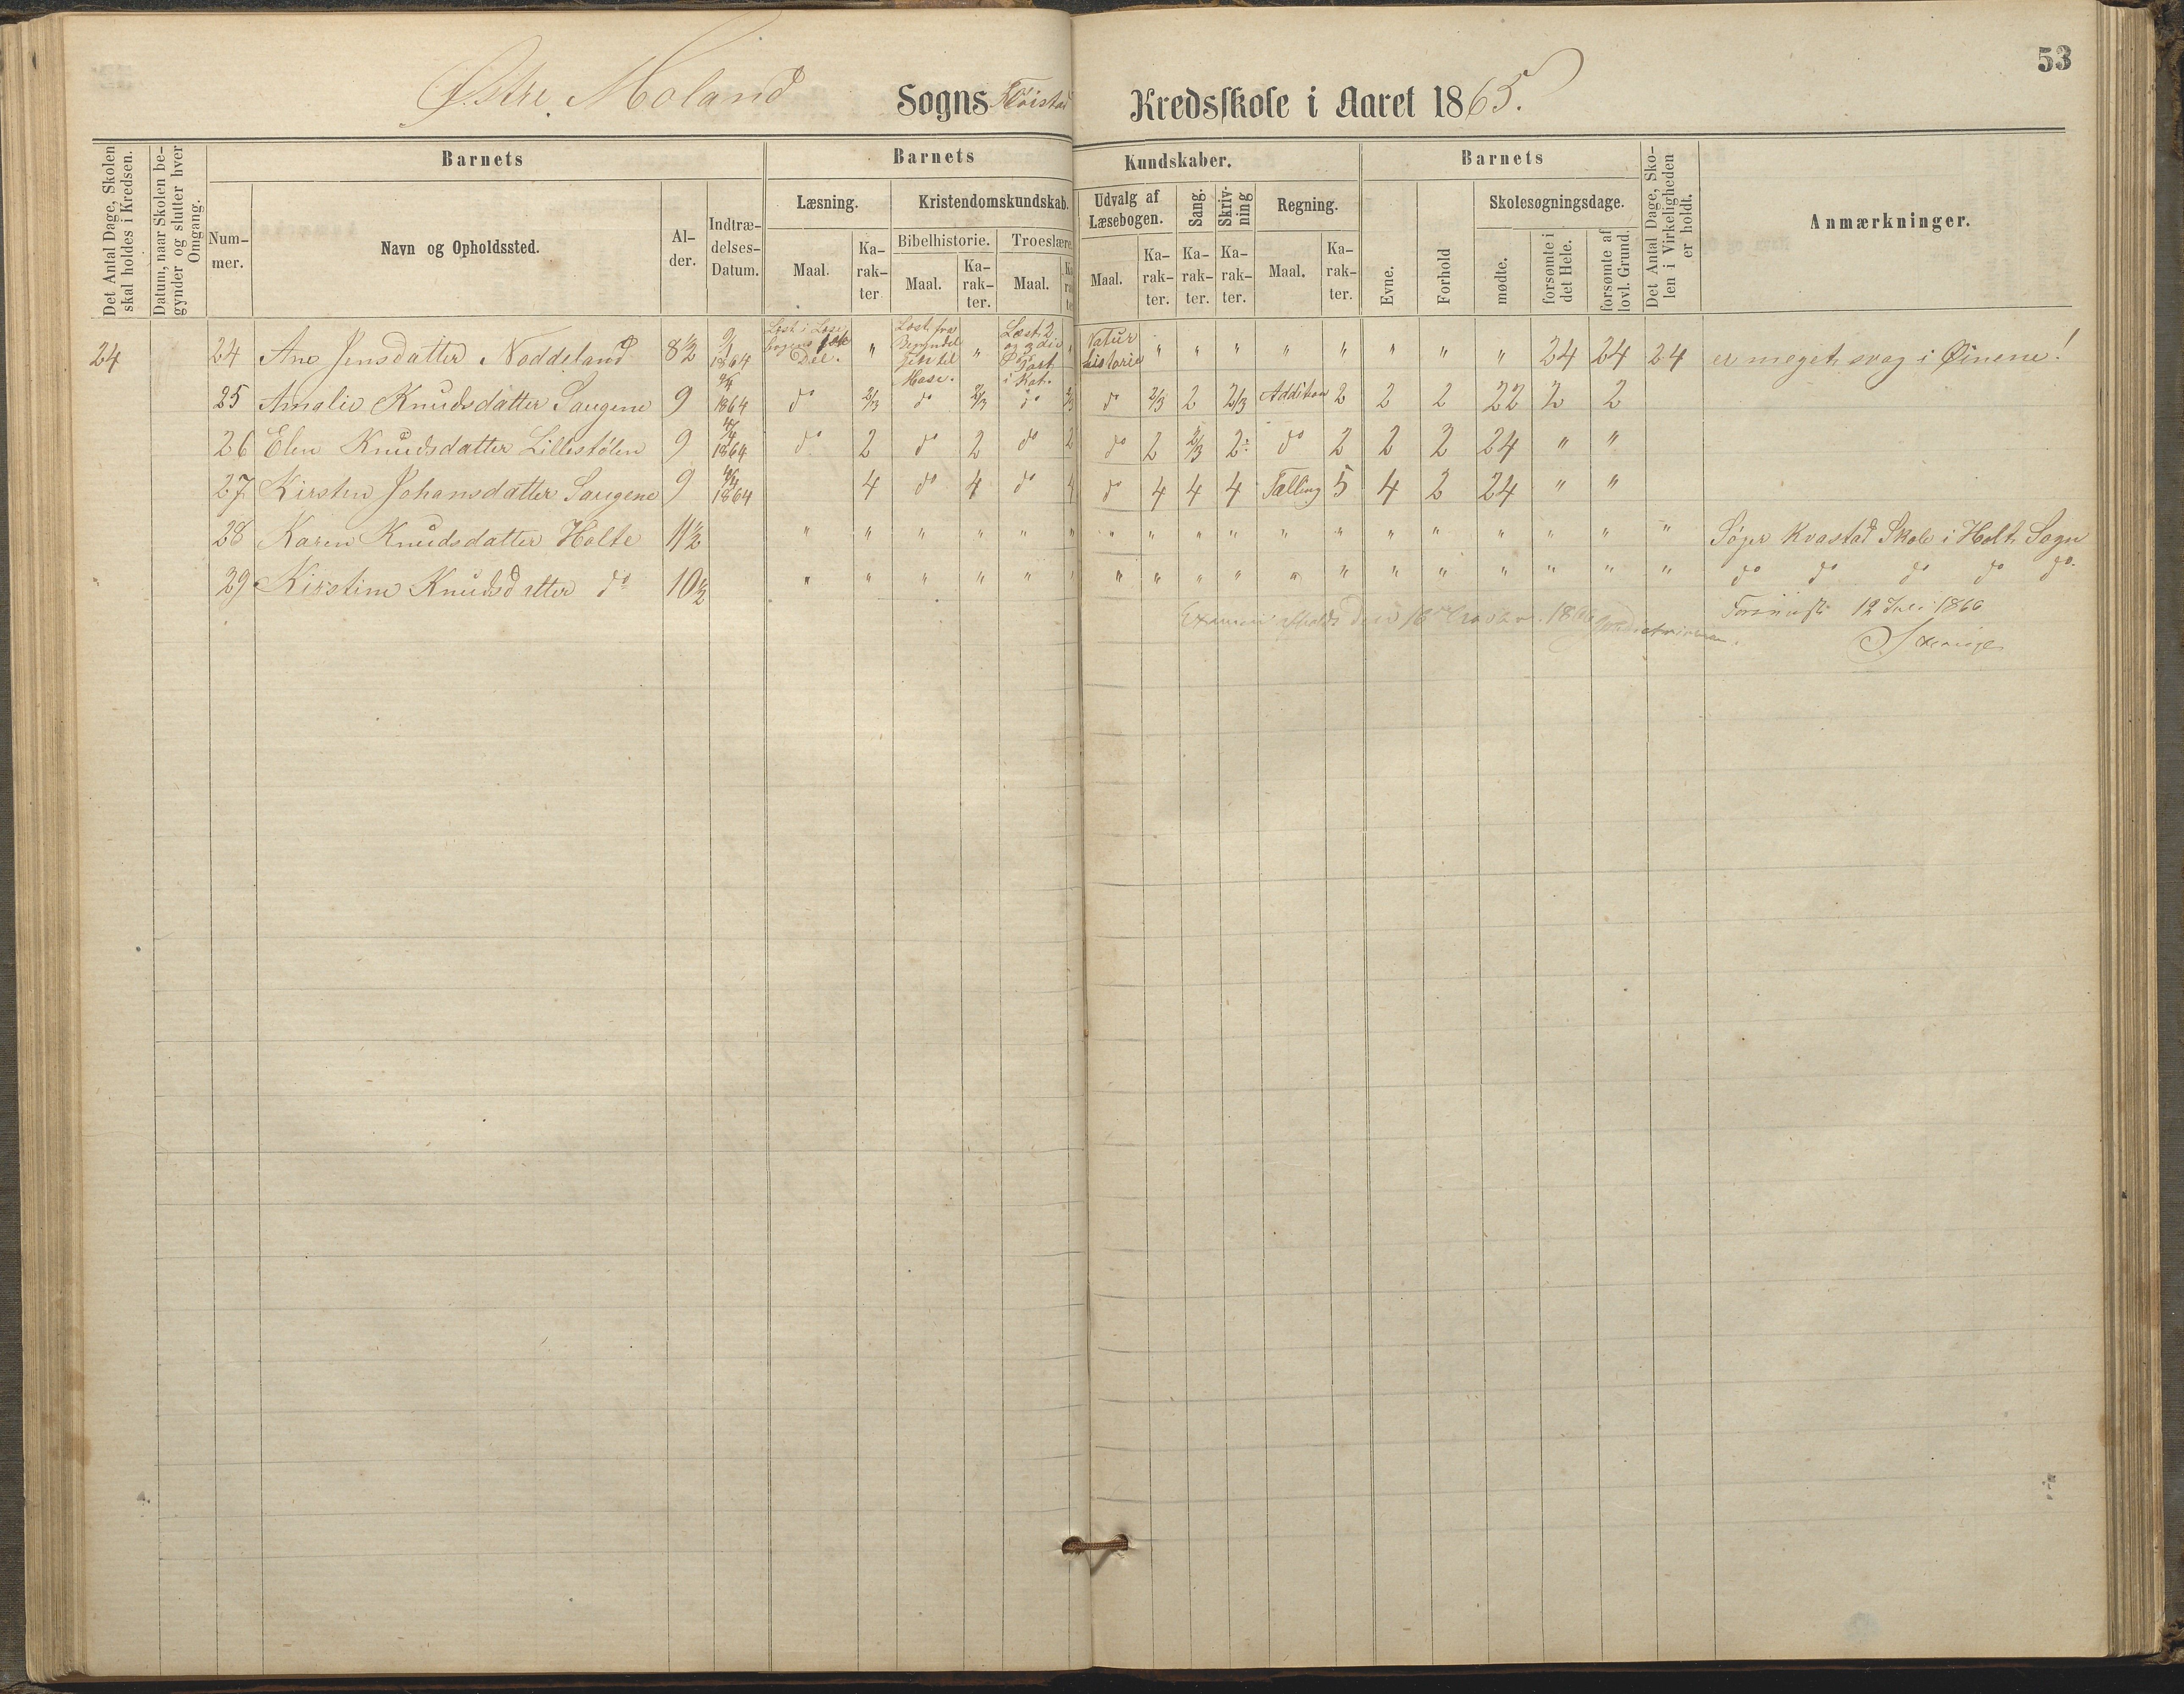 53
Østre Moland Sogns Fløistad Kredsskole i Aaret 1865.
Det Antal Dage, Skolen skal holdes i Kredsen.
Datum, naar Skolen begynder og slutter hver Omgang.
Barnets
Barnets
Kundskaber.
Barnets
Det Antal Dage, Skolen i Virkeligheden er holdt.
Anmærkninger.
Nummer.
Navn og Opholdssted.
Alder.
Indtrædelses-Datum.
Læsning.
Kristendomskundskab.
Udvalg af Læsebogen.
Sang.
Skrivning
Regning.
Evne.
Forhold
Skolesøgningsdage.
Maal.
Karakter
Bibelhistorie.
Troeslære.
Maal.
Karakter.
Maal.
Karakter
Maal.
Karakter.
Karakter.
Karakter.
Maal.
Karakter.
mødte.
forsømte i det Hele.
forsømte af lovl. Grund.
24 24 Ane Jensdatter Noddeland 8½ 1864 Læst i Læsebogens 1ste Del. " Læst fra Begyndel til Mose. " Læst 2 og 3die Part i Kat. " Natur historie " " " " " " " " 24 24 24 er meget svag i Øinene!
25 Amalie Knudsdatter Saugene 9 1864 do 2/3 do 2/3 do 2/3 do 2/3 2 2/3 Addition 2 2 2 22 2 2
26 Elen Knudsdatter Lillestølen 9 1864 do 2 do 2 do 2 do 2 2/3 2 do 2 2 2 24 " "
27 Kirsten Johansdatter Saugene 9 1864 4 do 4 do 4 do 4 4 4 Tælling 5 4 2 24 " "
28 Karen Knudsdatter Holte 11½ " " " " " " " " " " " " " " " " " " Søger Kvastad Skole i Holt Sogn
29 Kirstine Knudsdatter do 10½ " " " " " " " " " " " " " " " " " " do do do do do.
Examen afholdt den 18 1866
12 Juli 1866